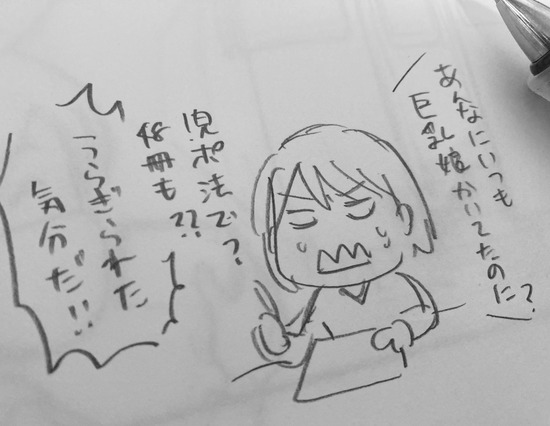 あんなにいつも
巨乳娘かいてたのに?
児ポ法で?
48冊も??
うらぎられた
気分だ!!